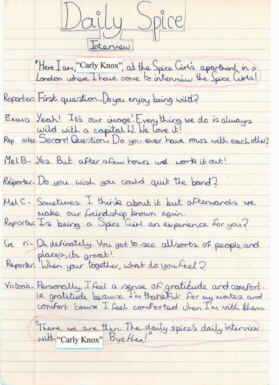 Daily Spice
Interview
"Here I am, "Carly Knox", at the Spice Girl's apartment in
London where I have come to interview the Spice Girls!
Reporter: First question. Do you enjoy being wild?
Emma: Yeah! It's our image! Everything we do is always
wild with a capital W. We love it!
Rep Second Question: Do you ever have rows with each other?
Mel B- Yes. But after a few hours we work it out!
Reporter: Do you wish you could quit the band?
Mel C- Sometimes I think about it but afterwards we
make our freindship known again.
Reporter: Is being a Spice Girl an experience for you?
Ge ri- Oh definately. You get to see all sorts of people and
places, its great!
Reporter: When your together, what do you feel?
Victoria: Personally, I feel a sense of gratitude and comfort
ie gratitude because I'm thankful for my mates and
comfort 'cause I feel comforted when I'm with them
"There we are then. The daily spice's daily interview
with "Carly Knox". Bye Now!